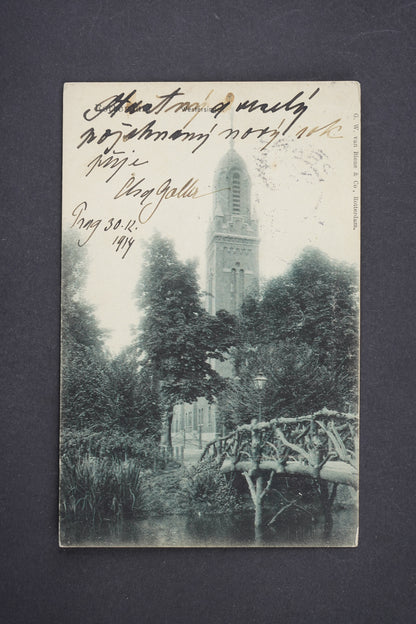 Šťastný a veselý
požehnaný nový rok
přeje
Elsa Galler
Prag 30.12.
1914
G. W. van Biene & Co, Rotterdam.